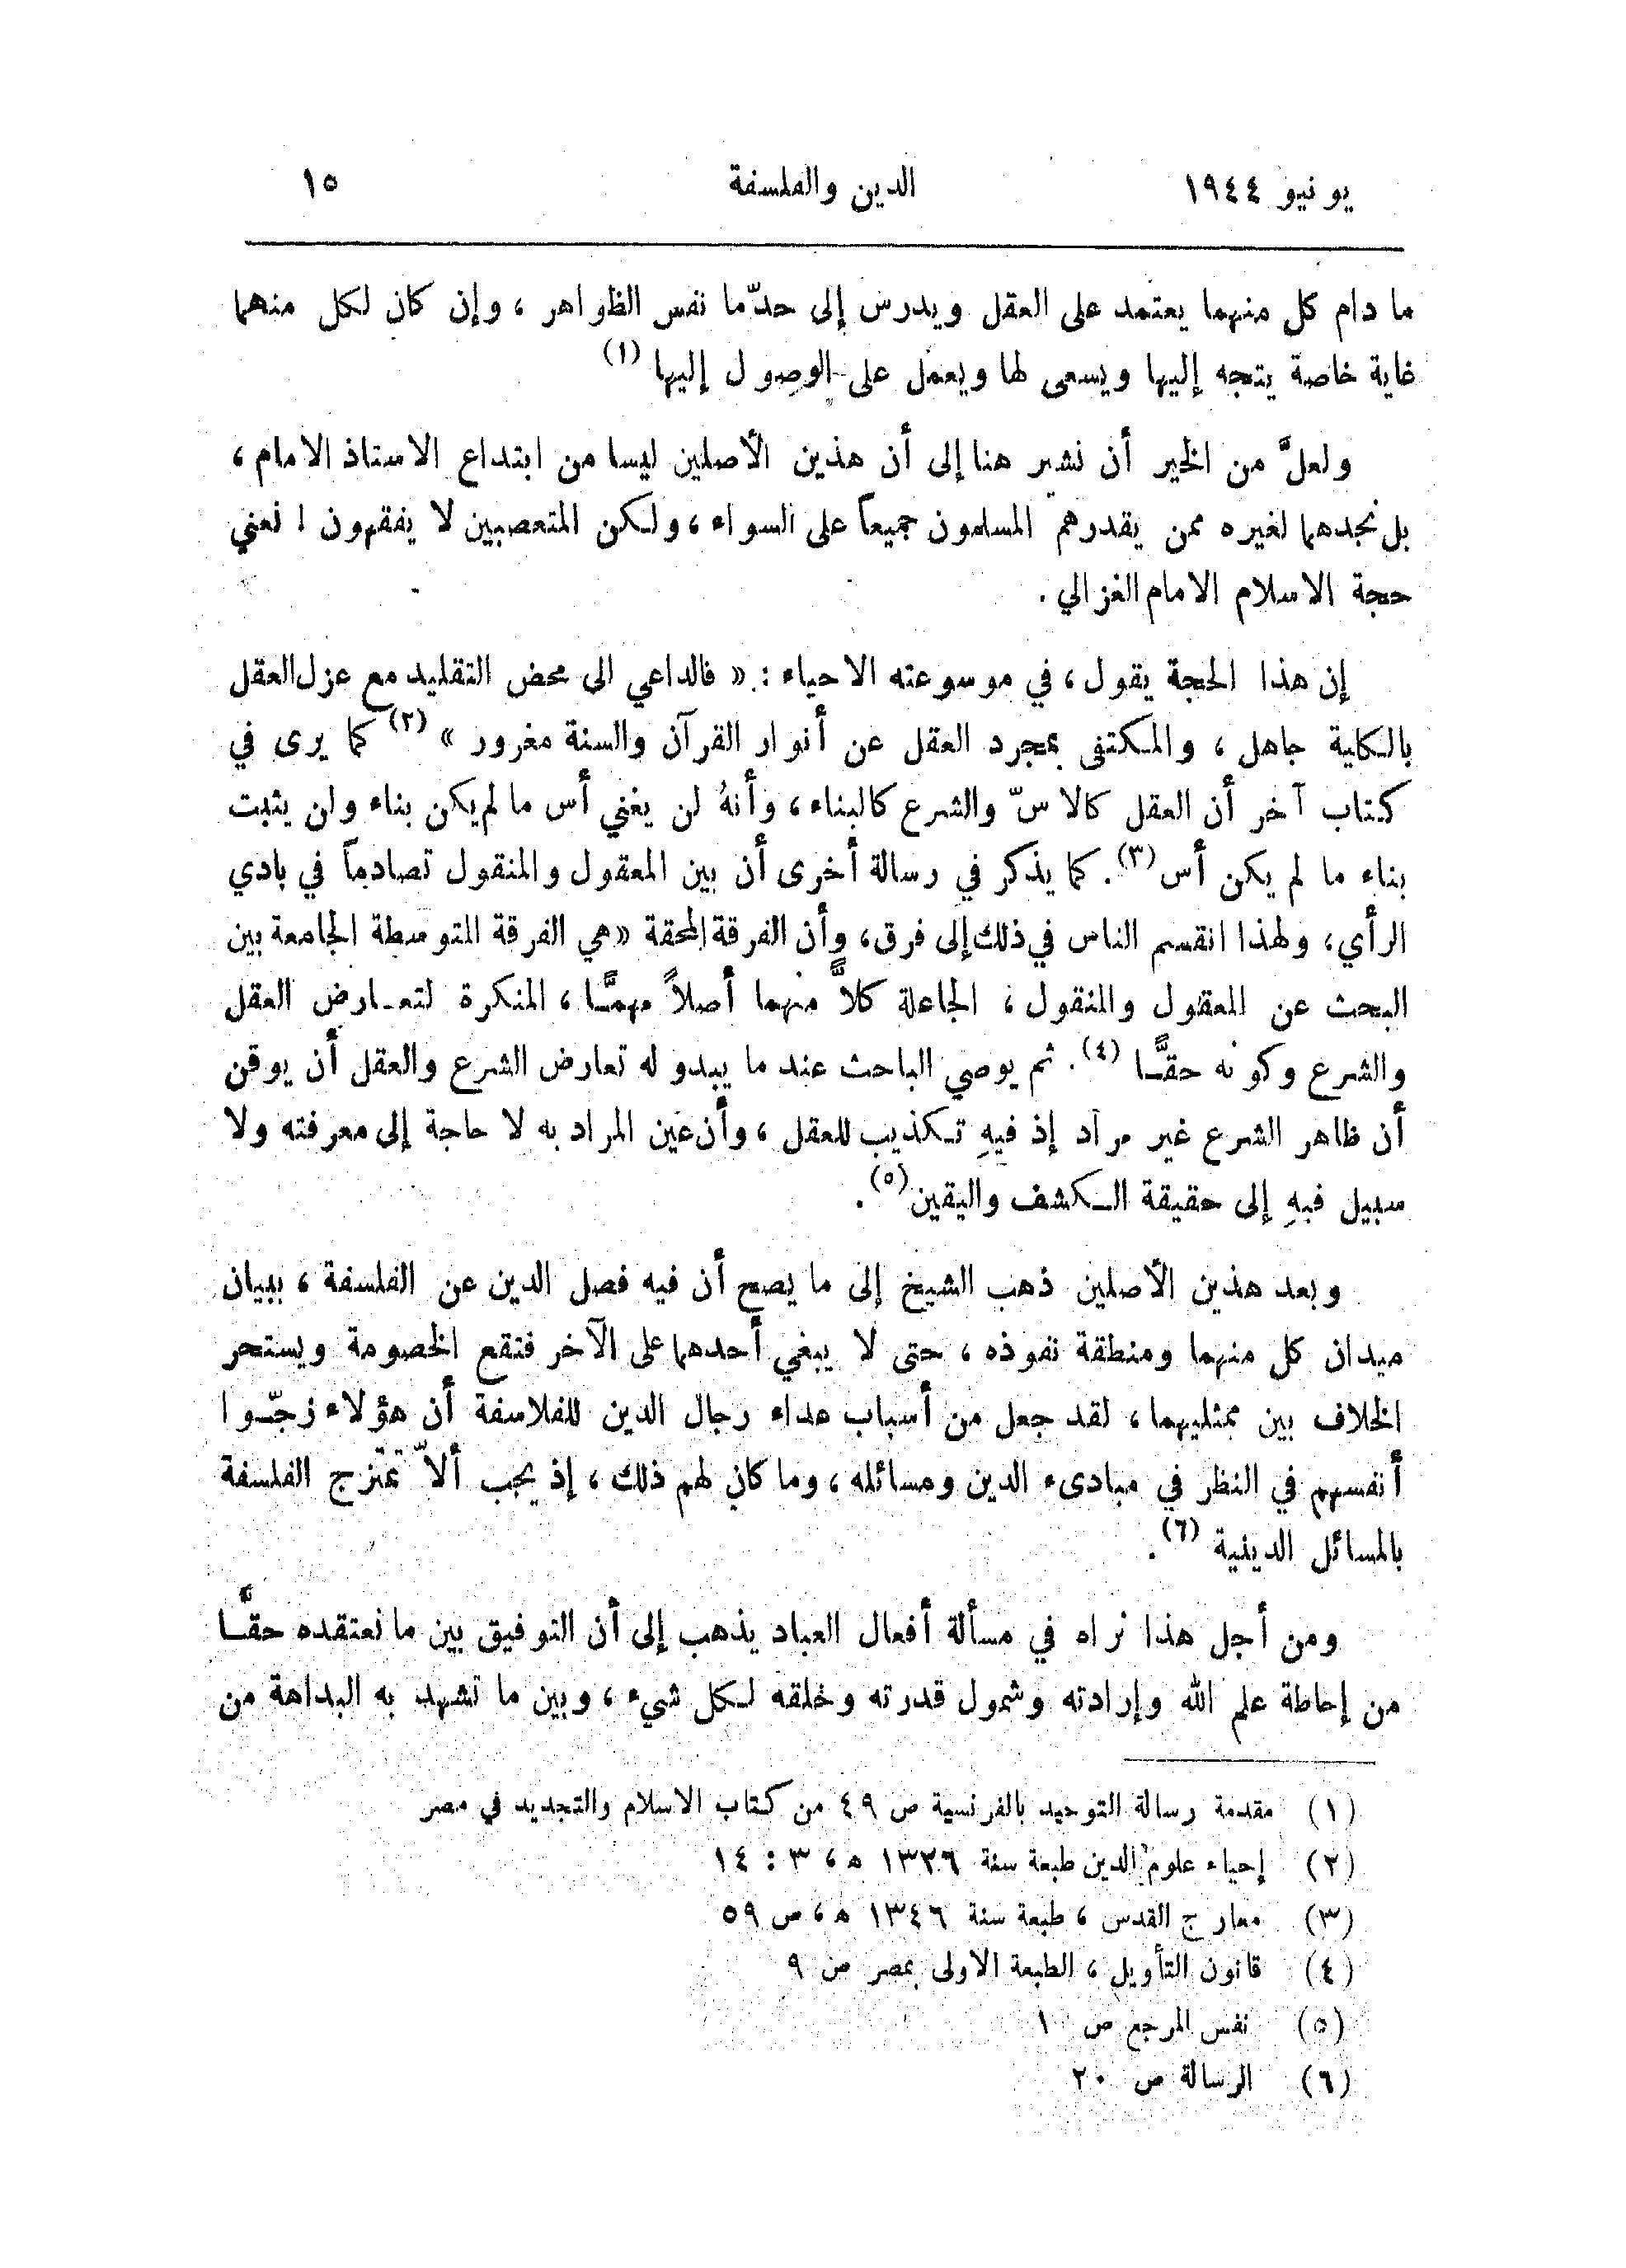 يونيو ١٩٤٤ الدين والفلسفة ١٥
ما دام كل منهما يعتمد على العقل ويدرس إلى حدّ ما نفس الظواهر ، وإن كان لكل منهما
غاية خاصة يتجه إليها ويسعى لها ويعمل على الوصول إليها (١)
ولعلَّ من الخير أن نشير هنا إلى أن هذين الأصلين ليسا من ابتداع الاستاذ الامام ،
بل نجدهما لغيره ممن يقدرهم المسلمون جميعاً على السواء ، ولكن المتعصبين لا يفقهون ! نعني
حجة الاسلام الامام الغزالي .
إن هذا الحجة يقول ، في موسوعته الاحياء : « فالداعي الى محض التقليد مع عزل العقل
بالكلية جاهل ، والمكتفى بمجرد العقل عن أنوار القرآن والسنة مغرور » (٢) كما يرى في
كتاب آخر أن العقل كالاسّ والشرع كالبناء ، وأنهُ لن يغني أس ما لم يكن بناء ولن يثبت
بناء ما لم يكن أس (٣) . كما يذكر في رسالة أخرى أن بين المعقول والمنقول تصادماً في بادي
الرأي ، ولهذا انقسم الناس في ذلك إلى فرق ، وأن الفرقة المحقة « هي الفرقة المتوسطة الجامعة بين
البحث عن المعقول والمنقول ، الجاعلة كلاًّ منهما أصلاً مهمًّا ، المنكرة لتعارض العقل
والشرع وكونه حقًّا (٤) . ثم يوصي الباحث عند ما يبدو له تعارض الشرع والعقل أن يوقن
أن ظاهر الشرع غير مراد إذ فيهِ تكذيب للعقل ، وأن عين المراد به لا حاجة إلى معرفته ولا
سبيل فيهِ إلى حقيقة الكشف واليقين (٥) .
وبعد هذين الأصلين ذهب الشيخ إلى ما يصح أن فيه فصل الدين عن الفلسفة ، ببيان
ميدان كل منهما ومنطقة نفوذه ، حتى لا يبغي أحدهما على الآخر فتقع الخصومة ويستحر
الخلاف بين ممثليهما ، لقد جعل من أسباب عداء رجال الدين للفلاسفة أن هؤلاء زجّوا
أنفسهم في النظر في مبادىء الدين ومسائله ، وما كان لهم ذلك ، إذ يجب ألاّ تمتزج الفلسفة
بالمسائل الدينية (٦) .
ومن أجل هذا نراه في مسألة أفعال العباد يذهب إلى أن التوفيق بين ما نعتقده حقًّا
من إحاطة علم الله وإرادته وشمول قدرته وخلقه لكل شيء ، وبين ما تشهد به البداهة من
(١) مقدمة رسالة التوحيد بالفرنسية ص ٤٩ من كتاب الاسلام والتجديد في مصر
(٢) إحياء علوم الدين طبعة سنة ١٣٢٦ ه ، ٣ : ١٤
(٣) معارج القدس ، طبعة سنة ١٣٤٦ ه ، ص ٥٩
(٤) قانون التأويل ، الطبعة الاولى بمصر ص ٩
(٥) نفس المرجع ص ١٠
(٦) الرسالة ص ٢٠